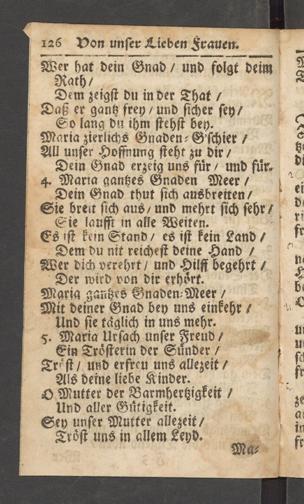 126 Von unser Lieben Frauen.
Wer hat dein Gnad / und folgt deim
Rath /
Dem zeigst du in der That /
Daß er gantz frey / und sicher sey /
So lang du ihm stehst bey.
Maria zierlichs Gnaden-G'schier /
All unser Hoffnung steht zu dir /
Dein Gnad erzeig uns für / und für.
4. Maria gantzes Gnaden Meer /
Dein Gnad thut sich ausbreiten /
Sie breit sich aus / und mehrt sich sehr /
Sie laufft in alle Weiten.
Es ist kein Stand / es ist kein Land /
Dem du nit reichest deine Hand /
Wer dich verehrt / und Hilff begehrt /
Der wird von dir erhört.
Maria gantzes Gnaden-Meer /
Mit deiner Gnad bey uns einkehr /
Und sie täglich in uns mehr.
5. Maria Ursach unser Freud /
Ein Trösterin der Sünder /
Tröst / und erfreu uns allezeit /
Als deine liebe Kinder.
O Mutter der Barmhertzigkeit /
Und aller Gütigkeit.
Sey unser Mutter allezeit /
Tröst uns in allem Leyd.
Ma-